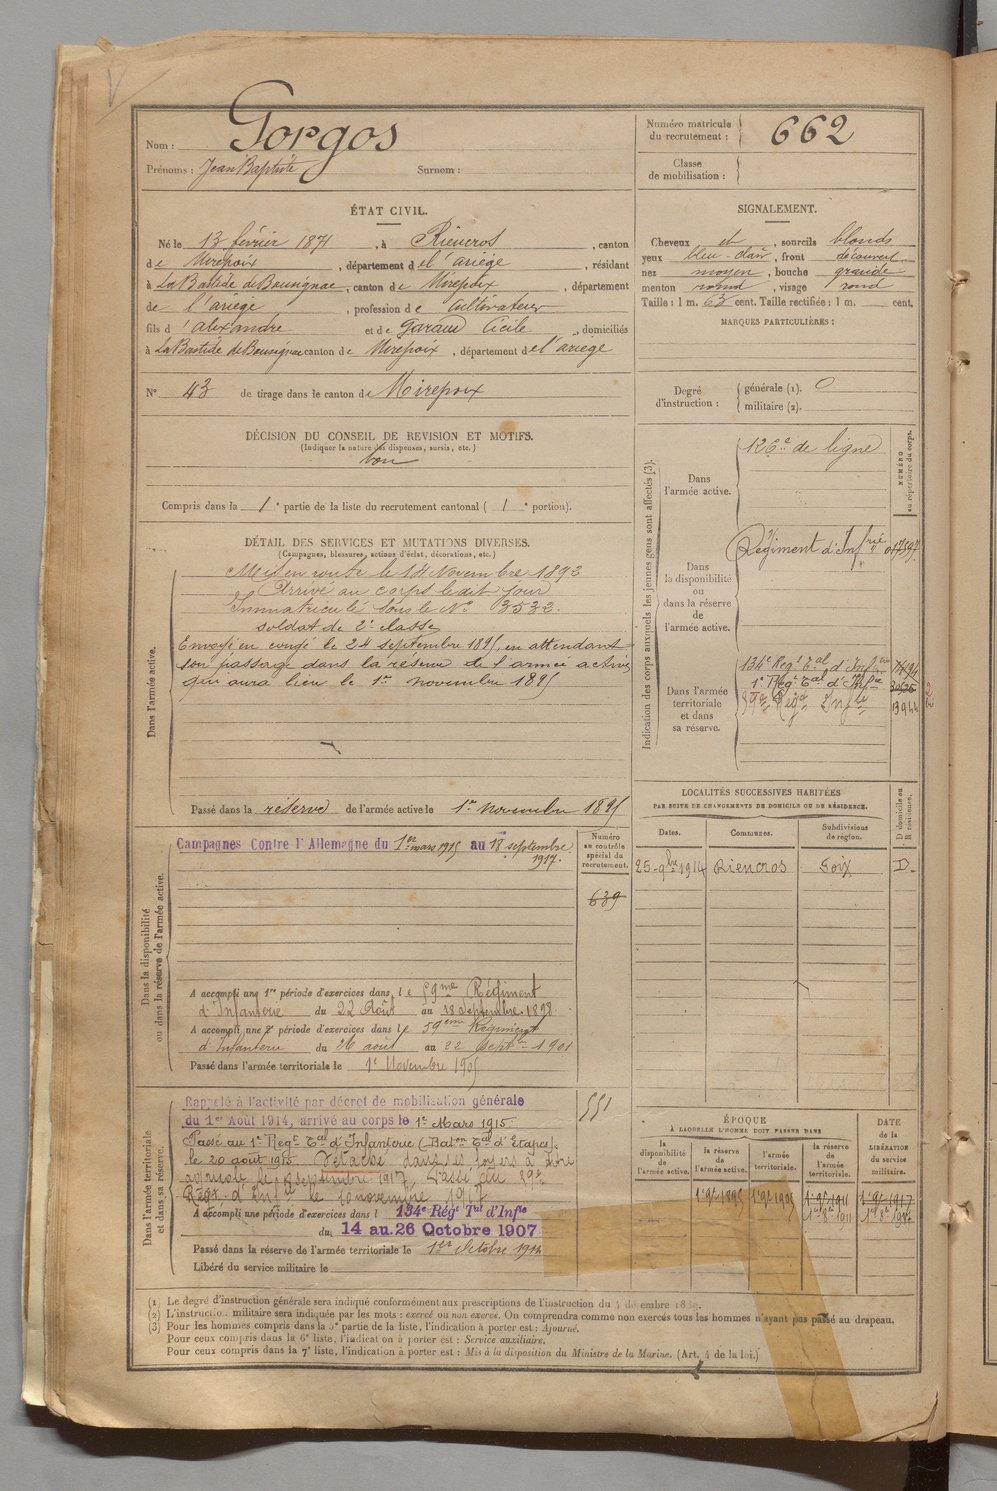 Nom : Gorgos
Prénoms : Jean Baptiste Surnom :
Numéro matricule du recrutement : 662
Classe de mobilisation :
ÉTAT CIVIL.
Né le 13 février 1871, à Rieucros, canton
de Mirepoix, département de l'ariège, résidant
à La Bastide de Bousignac, canton de Mirepoix, département
de l'ariège, profession de Cultivateur
fils d'alexandre et de Garaud Cécile, domiciliés
à La Bastide de Bousignac canton de Mirepoix, département de l'ariège
N° 43 de tirage dans le canton de Mirepoix
SIGNALEMENT.
Cheveux et, sourcils blonds
yeux bleu-clair, front découvert
nez moyen, bouche grande
menton rond, visage rond
Taille : 1 m. 63 cent. Taille rectifiée : 1 m. cent.
MARQUES PARTICULIÈRES :
Degré d'instruction : générale (1). 0
militaire (2).
DÉCISION DU CONSEIL DE REVISION ET MOTIFS.
(Indiquer la nature des dispenses, sursis, etc.)
bon
Compris dans la 1e partie de la liste du recrutement cantonal ( 1e portion).
DÉTAIL DES SERVICES ET MUTATIONS DIVERSES.
(Campagnes, blessures, actions d'éclat, décorations, etc.)
Dans l'armée active.
Mis en route le 14 Novembre 1892
Arrivé au corps ledit jour
Immatriculé sous le N° 3532.
soldat de 2e classe
Envoyé en congé le 24 septembre 1895, en attendant
son passage dans la réserve de l'armée active
qui aura lieu le 1er novembre 1895
Passé dans la réserve de l'armée active le 1er novembre 1895
Indication des corps auxquels les jeunes gens sont affectés (3).
NUMÉRO au répertoire du corps.
Dans l'armée active.
126e de ligne
Dans la disponibilité ou dans la réserve de l'armée active.
Régiment d'Infrie
Dans l'armée territoriale et dans sa réserve.
134e Régt Tal d'Infrie
1er Régt Tal d'Infie
59e Régt Infie 13944
LOCALITÉS SUCCESSIVES HABITÉES
PAR SUITE DE CHANGEMENTS DE DOMICILE OU DE RÉSIDENCE.
Dates. Communes. Subdivisions de région. D domicile ou R résidence.
25-9bre 1914 Rieucros Foix D.
Dans la disponibilité ou dans la réserve de l'armée active.
Campagnes Contre l'Allemagne du 1er mars 1915 au 18 septembre 1917.
Numéro au contrôle spécial du recrutement.
639
A accompli une 1re période d'exercices dans le 59me Régiment
d'Infanterie du 22 Août au 18 Septembre 1898
A accompli une 2e période d'exercices dans le 59em Régiment
d'Infanterie du 26 août au 22 Septre 1901
Passé dans l'armée territoriale le 1er Novembre 1905
Dans l'armée territoriale et dans sa réserve.
Rappelé à l'activité par décret de mobilisation générale
du 1er Août 1914, arrivé au corps le 1er Mars 1915.
551
Passé au 1er Régt Tal d'Infanterie (Baton Tal d'Etapes)
le 20 août 1915. Détaché dans ses foyers à titre
agricole le 18 septembre 1917. Passé au 59e
Régt d'Infie le 10 novembre 1917
A accompli une période d'exercices dans l 134e Régt Tal d'Infie
du 14 au 26 Octobre 1907
Passé dans la réserve de l'armée territoriale le 1er Octobre 1911
Libéré du service militaire le
ÉPOQUE
À LAQUELLE L'HOMME DOIT PASSER DANS
la disponibilité de l'armée active. la réserve de l'armée active. l'armée territoriale. la réserve de l'armée territoriale. DATE de la LIBÉRATION du service militaire.
1er 9bre 1895 1er 9bre 1905 1er 9bre 1911 1er 9bre 1917
1er 8bre 1911 1er 8bre 1917
(1) Le degré d'instruction générale sera indiqué conformément aux prescriptions de l'instruction du 4 décembre 1889.
(2) L'instruction militaire sera indiquée par les mots : exercé ou non exercé. On comprendra comme non exercés tous les hommes n'ayant pas passé au drapeau.
(3) Pour les hommes compris dans la 5e partie de la liste, l'indication à porter est : Ajourné.
Pour ceux compris dans la 6e liste, l'indication à porter est : Service auxiliaire.
Pour ceux compris dans la 7e liste, l'indication à porter est : Mis à la disposition du Ministre de la Marine. (Art. 4 de la loi.)